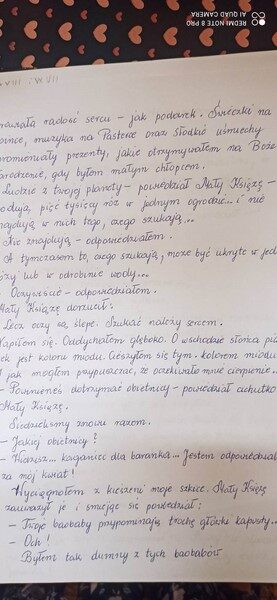 REDMI NOTE 9 PRO
AI QUAD CAMERA
radość sercu - jak podarek. Świeczki na
muzyka na Pasterce oraz słodkie uśmiechy
prezenty, jakie otrzymywałem na Boże
gdy byłem małym chłopcem.
Ludzie z twojej planety - powiedział Mały Książę -
pięć tysięcy róż w jednym ogrodzie... i nie
w nich tego, czego szukają...
Nie znajdują - odpowiedziałem.
A tymczasem to, czego szukają, może być ukryte w
lub w odrobinie wody...
Oczywiście - odpowiedziałem.
Mały Książę dorzucił:
Lecz oczy są ślepe. Szukać należy sercem.
Napiłem się. Oddychałem głęboko. O wschodzie słońca
jest koloru miodu. Cieszyłem się tym kolorem miodu
jak mogłem przypuszczać, że oczekiwało mnie cierpienie...
- Powinieneś dotrzymać obietnicy - powiedział cichutko
Mały Książę.
Siedzieliśmy znowu razem.
- Jakiej obietnicy?
- Wiesz... kaganiec dla baranka... Jestem odpowiedzial
za mój kwiat!
Wyciągnąłem z kieszeni moje szkice. Mały Książę
zauważył je i śmiejąc się powiedział:
- Twoje baobaby przypominają trochę główki kapusty...
- Och!
Byłem tak dumny z tych baobabów